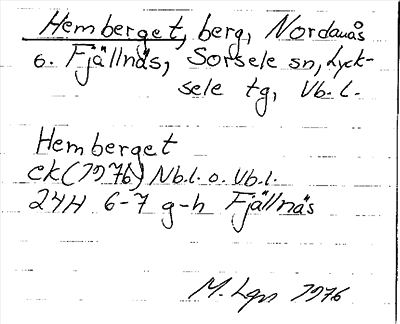 Hemberget, berg, Nordanås
o. Fjällnäs, Sorsele sn, Lyck-
sele tg, Vb. l.
Hemberget
ek (1976) Nb.l. o. Vb.l.
24H 6-7 g-h Fjällnäs
M. Lgn 1976